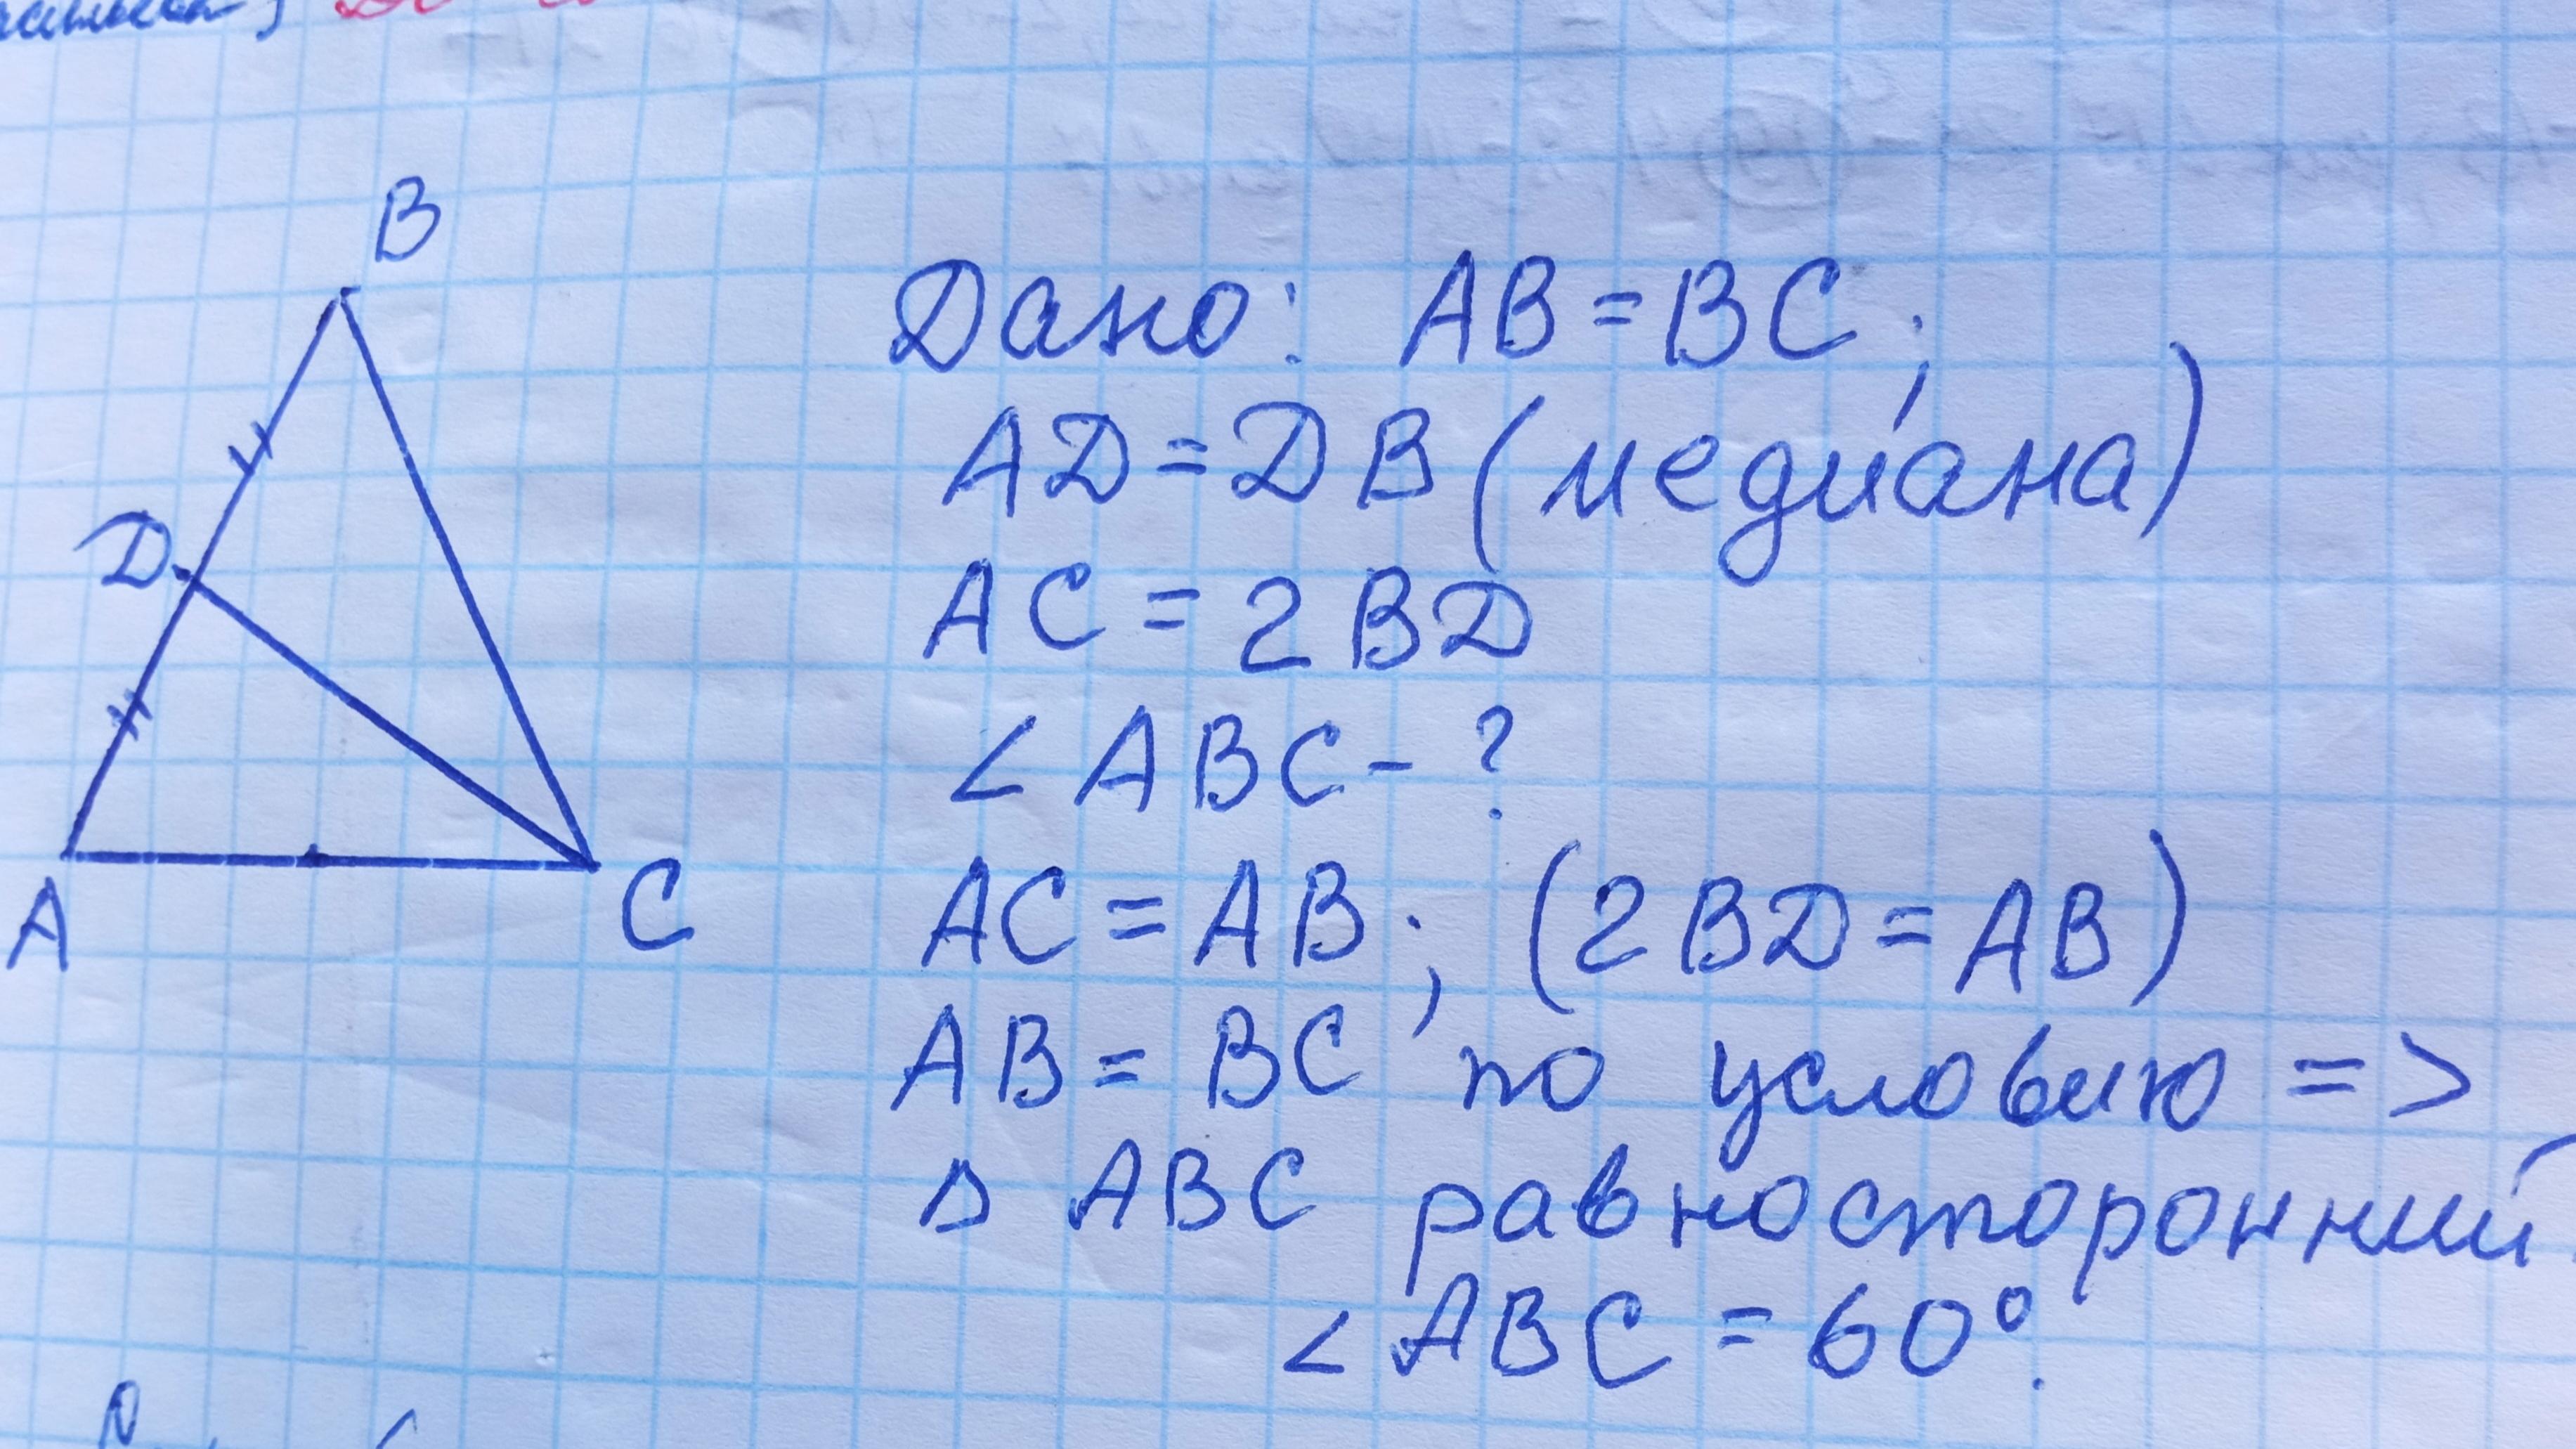 B
D
A
C
Дано: AB = BC;
AD = DB (медиана)
AC = 2BD
∠ABC - ?
AC = AB; (2BD = AB)
AB = BC по условию =>
Δ ABC равносторонний
∠ABC = 60°.